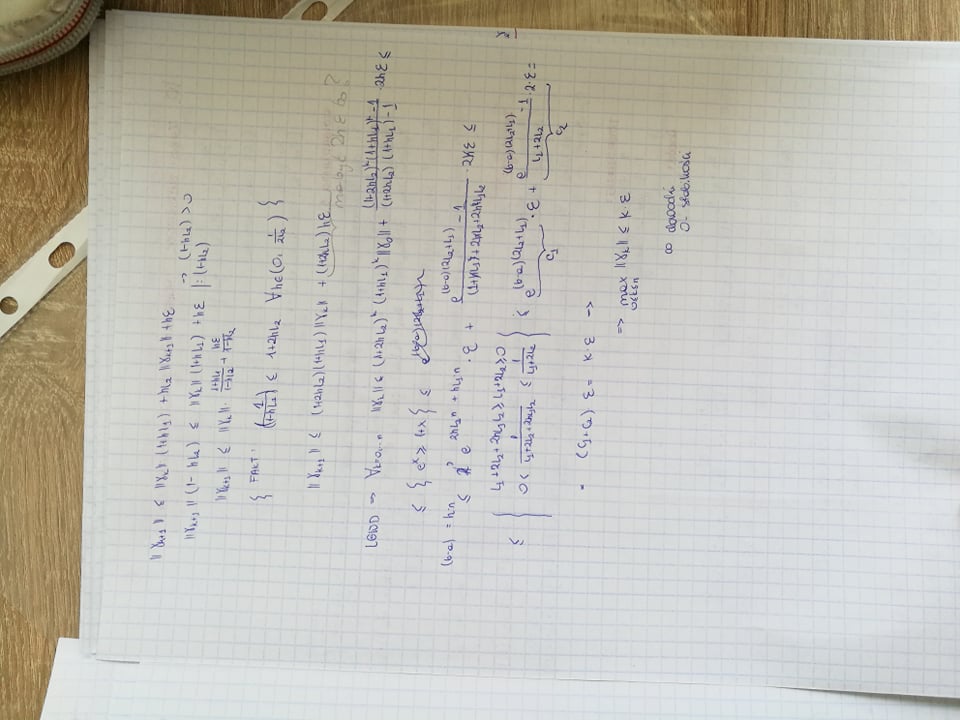 ||γₖ₊₁|| ≤ ||γₖ|| (1+hL₁) + hL₂ ||γₖ₊₁|| + hε
→ (1-hL₂) > 0
||γₖ₊₁|| (1- hL₂) ≤ ||γₖ|| (1+hL₁) + hε |:(1-hL₂)
||γₖ₊₁|| ≤ ||γₖ|| · (1+hL₁)/(1-hL₂) + hε/(1-hL₂)
{ FAKT: (1/(1-hL₂)) ≤ 1+2hL₂ ∀h∈(0, 1/(2L₂)) }
||γₖ₊₁|| ≤ (1+2hL₂)(1+hL₁)||γₖ|| + (1+2hL₂)hε
ma być 2hε bo?
LGWD → ∀ₖ₌₀,...ₙ ||γₖ|| ≤ (1+2hL₂)ᵏ (1+hL₁)ᵏ ||γ₀|| + ((1+2hL₂)ᵏ(1+hL₁)ᵏ-1)/((1+2hL₂)(1+hL₁)-1) · 2hε ≤
≤ { eˣ ≥ 1+x } ≤
(b-a) = h·n ≤ e^(2hL₂n + hL₁·n) · ε + (e^((b-a)(2L₂+L₁)) - 1)/(1+hL₁+2hL₂+2h²L₁L₂) · 2hε ≤
≤ { L₁+2L₂+2hL₁L₂ ≥ L₁+2L₂ ≥ 0
0 < 1/(L₁+2L₂+2hL₁L₂) ≤ 1/(L₁+2L₂) } ≤ e^((b-a)(2L₂+L₁)) · ε + (e^((b-a)(2L₂+L₁)) - 1)/(L₁+2L₂) · 2·ε =
C₁ C₂
= (C₁+C₂) ε = K·ε →
=> max 0≤k≤n ||γₖ|| ≤ K·ε
co dowodzi
0- stabilności